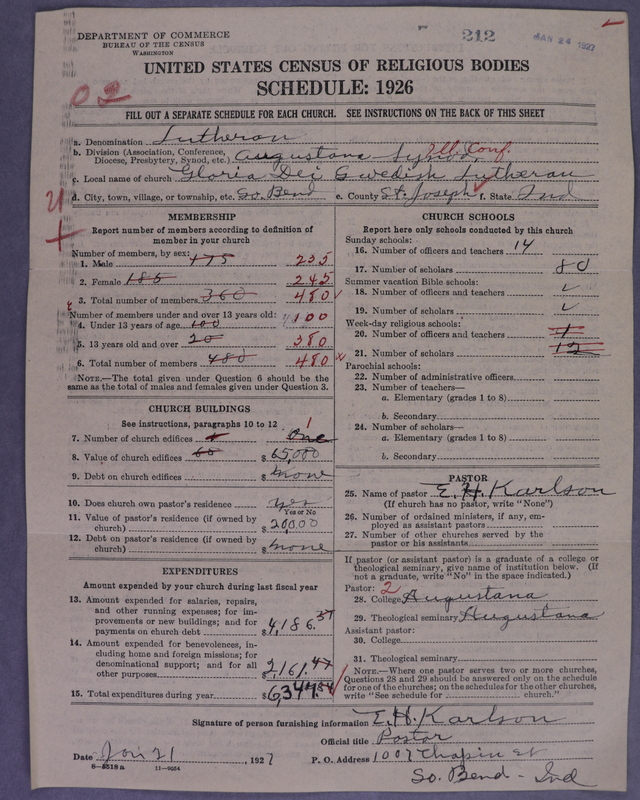 DEPARTMENT OF COMMERCE
BUREAU OF THE CENSUS
WASHINGTON
212
JAN 24 1927
UNITED STATES CENSUS OF RELIGIOUS BODIES
SCHEDULE: 1926
02
FILL OUT A SEPARATE SCHEDULE FOR EACH CHURCH. SEE INSTRUCTIONS ON THE BACK OF THIS SHEET
a. Denomination Lutheran
b. Division (Association, Conference, Diocese, Presbytery, Synod, etc.) Augustana Synod, Ill. Conf.
c. Local name of church Gloria Dei Swedish Lutheran
d. City, town, village, or township, etc. So. Bend e. County St. Joseph f. State Ind
MEMBERSHIP
Report number of members according to definition of
member in your church
Number of members, by sex:
1. Male 175 235
2. Female 185 245
3. Total number of members 360 480
Number of members under and over 13 years old:
4. Under 13 years of age 100 100
5. 13 years old and over 20 380
6. Total number of members 480 480
NOTE.—The total given under Question 6 should be
same as the total of males and females given under Question 3.
CHURCH BUILDINGS
See instructions, paragraphs 10 to 12
7. Number of church edifices One 1
8. Value of church edifices 65 $ 65,000
9. Debt on church edifices $ none
10. Does church own pastor's residence yes
Yes or No
11. Value of pastor's residence (if owned by
church) $ 20000
12. Debt on pastor's residence (if owned by
church) $ none
EXPENDITURES
Amount expended by your church during last fiscal year
13. Amount expended for salaries, repairs,
and other running expenses; for im-
provements or new buildings; and for
payments on church debt $ 4,186.37
14. Amount expended for benevolences, in-
cluding home and foreign missions; for
denominational support; and for all
other purposes 2,161.47
15. Total expenditures during year $ 6347.84
CHURCH SCHOOLS
Report here only schools conducted by this church
Sunday schools:
16. Number of officers and teachers 14
17. Number of scholars 80
Summer vacation Bible schools:
18. Number of officers and teachers
19. Number of scholars
Week-day religious schools:
20. Number of officers and teachers 1
21. Number of scholars 12
Parochial schools:
22. Number of administrative officers
23. Number of teachers—
a. Elementary (grades 1 to 8)
b. Secondary
24. Number of scholars—
a. Elementary (grades 1 to 8)
b. Secondary
PASTOR
25. Name of pastor E. H. Karlson
(If church has no pastor, write "None")
26. Number of ordained ministers, if any, em-
ployed as assistant pastors
27. Number of other churches served by the
pastor or his assistants
If pastor (or assistant pastor) is a graduate of a college or
theological seminary, give name of institution below. (If
not a graduate, write "No" in the space indicated.)
Pastor: 2
28. College Augustana
29. Theological seminary Augustana
Assistant pastor:
30. College
31. Theological seminary
NOTE.—Where one pastor serves two or more churches,
Questions 28 and 29 should be answered only on the schedule
for one of the churches; on the schedules for the other churches,
write "See schedule for church."
Signature of person furnishing information E. H. Karlson
Official title Pastor
Date Jan 21, 1927 P. O. Address 1007 Chapin st
8—5518a 11—9054
So. Bend - Ind